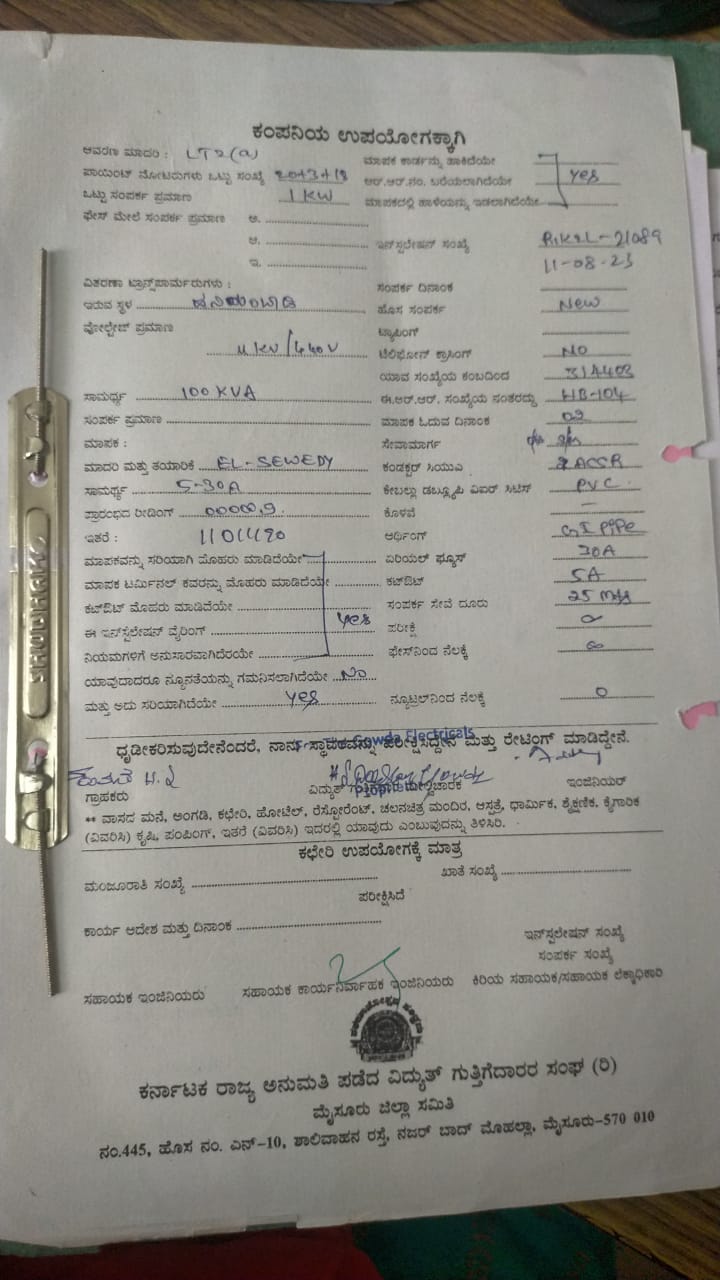 ಕಂಪನಿಯ ಉಪಯೋಗಕ್ಕಾಗಿ
ಆವರಣ ಮಾದರಿ : LT2(a) ಮಾಪಕ ಕಾರ್ಡನ್ನು ಹಾಕಿದೆಯೇ
ಪಾಯಿಂಟ್ ಮೋಟರುಗಳು ಒಟ್ಟು ಸಂಖ್ಯೆ ಆರ್.ಆರ್.ನಂ. ಬರೆಯಲಾಗಿದೆಯೇ Yes
ಒಟ್ಟು ಸಂಪರ್ಕ ಪ್ರಮಾಣ 1 KW ಮಾಪಕದಲ್ಲಿ ಹಾಳೆಯನ್ನು ಇಡಲಾಗಿದೆಯೇ
ಫೇಸ್ ಮೇಲೆ ಸಂಪರ್ಕ ಪ್ರಮಾಣ ಅ.
ಆ. ಇನ್‌ಸ್ಟಲೇಷನ್ ಸಂಖ್ಯೆ 21089
ಇ. 11-08-23
ವಿತರಣಾ ಟ್ರಾನ್ಸ್‌ಫಾರ್ಮರುಗಳು : ಸಂಪರ್ಕ ದಿನಾಂಕ
ಇರುವ ಸ್ಥಳ ಹೊಸ ಸಂಪರ್ಕ New
ವೋಲ್ಟೇಜ್ ಪ್ರಮಾಣ ಟ್ಯಾಪಿಂಗ್
11 KV/440V ಟೆಲಿಫೋನ್ ಕ್ರಾಸಿಂಗ್ NO
ಯಾವ ಸಂಖ್ಯೆಯ ಕಂಬದಿಂದ 314403
ಸಾಮರ್ಥ್ಯ 100 KVA ಈ.ಆರ್.ಆರ್. ಸಂಖ್ಯೆಯ ನಂತರದ್ದು HB-104
ಸಂಪರ್ಕ ಪ್ರಮಾಣ ಮಾಪಕ ಓದುವ ದಿನಾಂಕ 02
ಮಾಪಕ : ಸೇವಾಮಾರ್ಗ
ಮಾದರಿ ಮತ್ತು ತಯಾರಿಕೆ EL-SEWEDY ಕಂಡಕ್ಟರ್ ಸಿಯುಎ ACSR
ಸಾಮರ್ಥ್ಯ 5-30A ಕೇಬಲ್ಲು ಡಬ್ಲ್ಯೂಪಿ ವಿಐರ್ ಸಿಟಿಸ್ PVC
ಪ್ರಾರಂಭದ ರೀಡಿಂಗ್ ಕೊಳವೆ –
ಇತರೆ : 11011490 ಆರ್ಥಿಂಗ್ GI PIPE
ಮಾಪಕವನ್ನು ಸರಿಯಾಗಿ ಮೊಹರು ಮಾಡಿದೆಯೇ ಏರಿಯಲ್ ಫ್ಯೂಸ್ 30A
ಮಾಪಕ ಟರ್ಮಿನಲ್ ಕವರನ್ನು ಮೊಹರು ಮಾಡಿದೆಯೇ ಕಟ್‌ಔಟ್ 5A
ಕಟ್‌ಔಟ್ ಮೊಹರು ಮಾಡಿದೆಯೇ ಸಂಪರ್ಕ ಸೇವೆ ದೂರು 25 Mts
ಈ ಇನ್‌ಸ್ಟಲೇಷನ್ ವೈರಿಂಗ್ Yes ಪರೀಕ್ಷೆ
ನಿಯಮಗಳಿಗೆ ಅನುಸಾರವಾಗಿದೆರಯೇ ಫೇಸ್‌ನಿಂದ ನೆಲಕ್ಕೆ
ಯಾವುದಾದರೂ ನ್ಯೂನತೆಯನ್ನು ಗಮನಿಸಲಾಗಿದೆಯೇ No
ಮತ್ತು ಅದು ಸರಿಯಾಗಿದೆಯೇ Yes ನ್ಯೂಟ್ರಲ್‌ನಿಂದ ನೆಲಕ್ಕೆ 0
Gowda Electricals
ಧೃಡೀಕರಿಸುವುದೇನೆಂದರೆ, ನಾನು ಸ್ಥಾಪಕವನ್ನೂ ಪರೀಕ್ಷಿಸಿದ್ದೇನೆ ಮತ್ತು ರೇಟಿಂಗ್ ಮಾಡಿದ್ದೇನೆ.
ಗ್ರಾಹಕರು ವಿದ್ಯುತ್ ಗುತ್ತಿಗೆದಾರ ಮೇಲ್ವಿಚಾರಕ ಇಂಜಿನಿಯರ್
** ವಾಸದ ಮನೆ, ಅಂಗಡಿ, ಕಛೇರಿ, ಹೋಟೆಲ್, ರೆಸ್ಟೋರೆಂಟ್, ಚಲನಚಿತ್ರ ಮಂದಿರ, ಆಸ್ಪತ್ರೆ, ಧಾರ್ಮಿಕ, ಶೈಕ್ಷಣಿಕ, ಕೈಗಾರಿಕ
(ವಿವರಿಸಿ) ಕೃಷಿ, ಪಂಪಿಂಗ್, ಇತರೆ (ವಿವರಿಸಿ) ಇದರಲ್ಲಿ ಯಾವುದು ಎಂಬುವುದನ್ನು ತಿಳಿಸಿರಿ.
ಕಛೇರಿ ಉಪಯೋಗಕ್ಕೆ ಮಾತ್ರ
ಮಂಜೂರಾತಿ ಸಂಖ್ಯೆ ಖಾತೆ ಸಂಖ್ಯೆ
ಪರೀಕ್ಷಿಸಿದೆ
ಕಾರ್ಯ ಆದೇಶ ಮತ್ತು ದಿನಾಂಕ
ಇನ್‌ಸ್ಟಲೇಷನ್ ಸಂಖ್ಯೆ
ಸಂಪರ್ಕ ಸಂಖ್ಯೆ
ಸಹಾಯಕ ಇಂಜಿನಿಯರು ಸಹಾಯಕ ಕಾರ್ಯನಿರ್ವಾಹಕ ಇಂಜಿನಿಯರು ಕಿರಿಯ ಸಹಾಯಕ/ಸಹಾಯಕ ಲೆಕ್ಕಾಧಿಕಾರಿ
ಕರ್ನಾಟಕ ರಾಜ್ಯ ಅನುಮತಿ ಪಡೆದ ವಿದ್ಯುತ್ ಗುತ್ತಿಗೆದಾರರ ಸಂಘ (ರಿ)
ಮೈಸೂರು ಜಿಲ್ಲಾ ಸಮಿತಿ
ನಂ.445, ಹೊಸ ನಂ. ಎನ್-10, ಶಾಲಿವಾಹನ ರಸ್ತೆ, ನಜರ್ ಬಾದ್ ಮೊಹಲ್ಲಾ, ಮೈಸೂರು-570 010